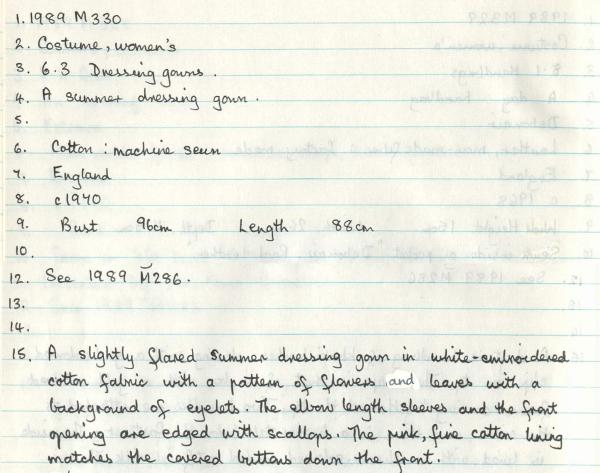 1. 1989 M330
2. Costume, women's
3. 6.3 Dressing gowns.
4. A summer dressing gown.
5.
6. Cotton: machine sewn
7. England
8. c1970
9. Bust 96cm Length 88cm
10.
12. See 1989 M286.
13.
14.
15. A slightly flared summer dressing gown in white-embroidered
cotton fabric with a pattern of flowers and leaves with a
background of eyelets. The elbow length sleeves and the front
opening are edged with scallops. The pink, fine cotton lining
matches the covered buttons down the front.